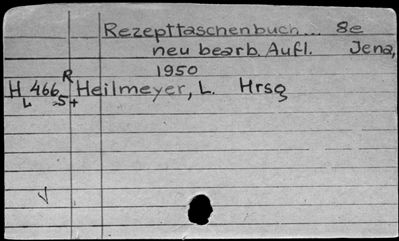 Rezepttaschenbuch... 8e
neu bearb. Aufl. Jena,
1950
R
H 466 Heilmeyer, L. Hrsg
L 5+